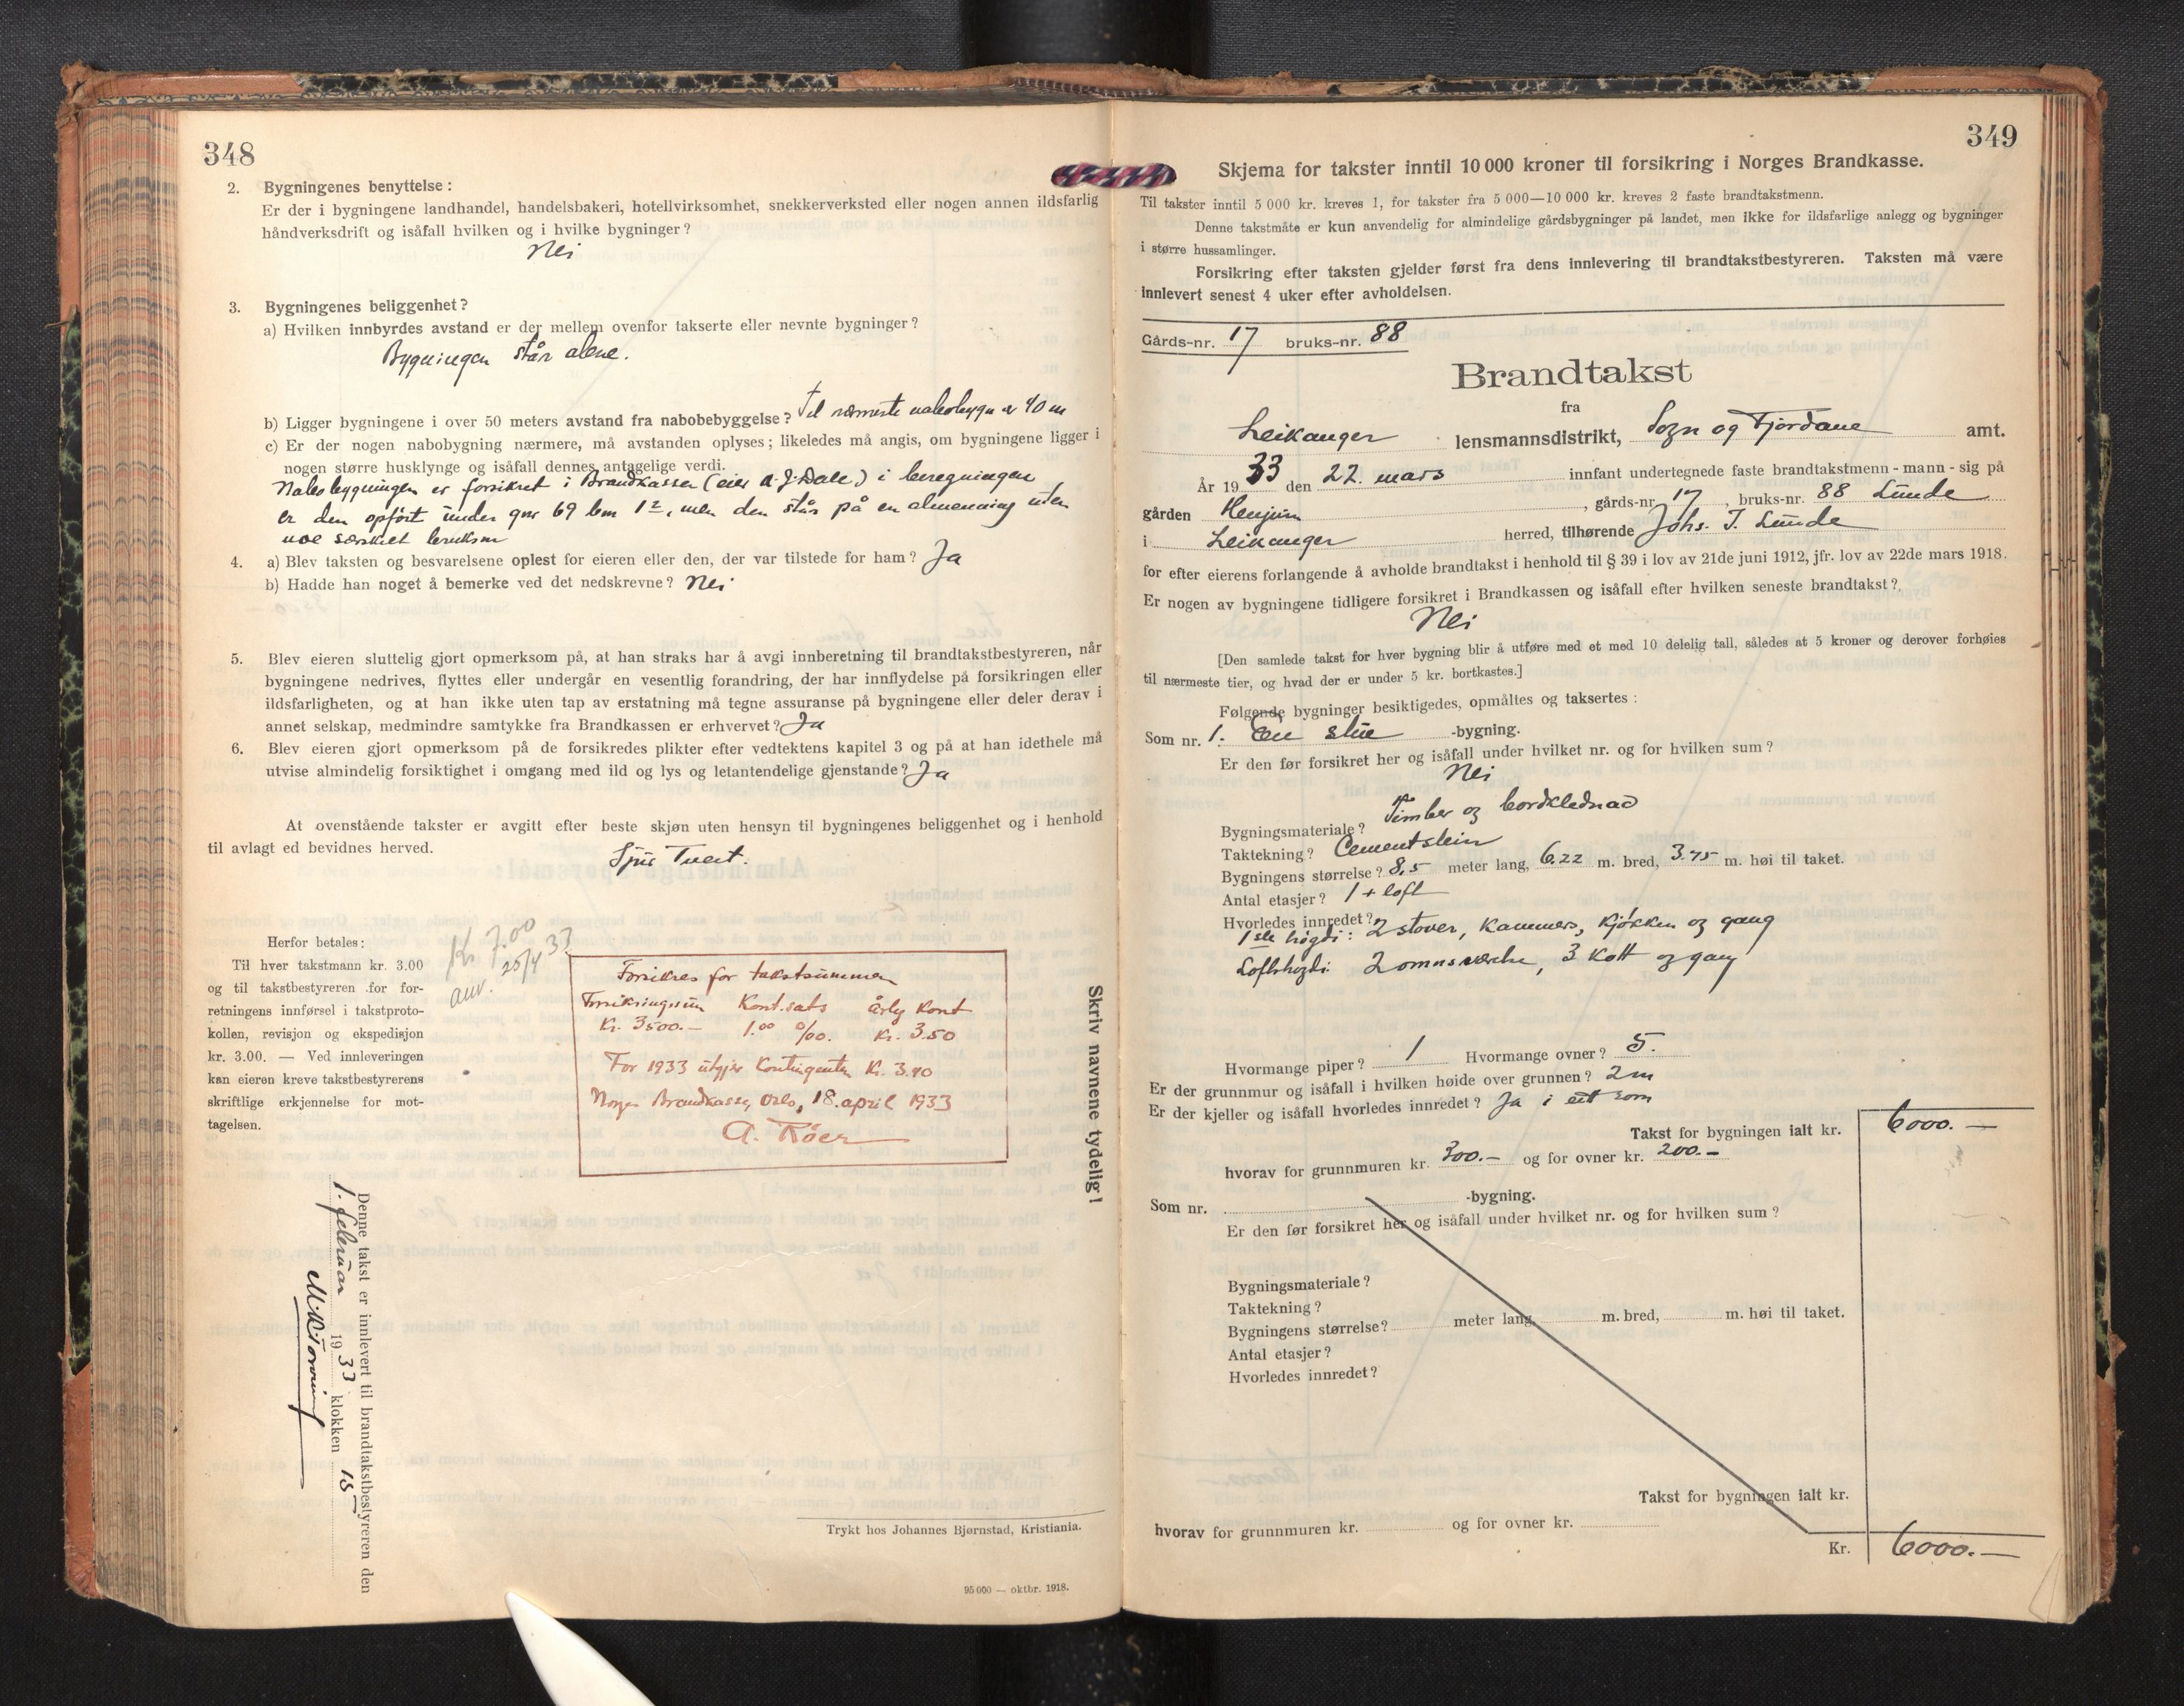 348
2. Bygningenes benyttelse:
Er der i bygningene landhandel, handelsbakeri, hotellvirksomhet, snekkerverksted eller nogen annen ildsfarlig
håndverksdrift og isåfall hvilken og i hvilke bygninger?
Nei
3. Bygningenes beliggenhet?
a) Hvilken innbyrdes avstand er der mellem ovenfor takserte eller nevnte bygninger?
Bygningen står alene.
b) Ligger bygningene i over 50 meters avstand fra nabobebyggelse? Til nærmeste nabobygn er 40 m
c) Er der nogen nabobygning nærmere, må avstanden oplyses; likeledes må angis, om bygningene ligger i
nogen større husklynge og isåfall dennes antagelige verdi.
Nabobygningen er forsikret i Brandkassen (eier A. J. Dale) i beregningen
er den opført under gnr 69 bnr 1, men den står på en almenning uten
noe særskilt bruksnr
4. a) Blev taksten og besvarelsene oplest for eieren eller den, der var tilstede for ham? Ja
b) Hadde han noget å bemerke ved det nedskrevne? Nei
5. Blev eieren sluttelig gjort opmerksom på, at han straks har å avgi innberetning til brandtakstbestyreren, når
bygningene nedrives, flyttes eller undergår en vesentlig forandring, der har innflydelse på forsikringen eller
ildsfarligheten, og at han ikke uten tap av erstatning må tegne assuranse på bygningene eller deler derav i
annet selskap, medmindre samtykke fra Brandkassen er erhvervet? Ja
6. Blev eieren gjort opmerksom på de forsikredes plikter efter vedtektens kapitel 3 og på at han idethele må
utvise almindelig forsiktighet i omgang med ild og lys og letantendelige gjenstande? Ja
At ovenstående takster er avgitt efter beste skjøn uten hensyn til bygningenes beliggenhet og i henhold
til avlagt ed bevidnes herved.
Sjur Tveit.
Herfor betales:
Til hver takstmann kr. 3.00
og til takstbestyreren for for-
retningens innførsel i takstproto-
kollen, revisjon og ekspedisjon
kr. 3.00. — Ved innleveringen
kan eieren kreve takstbestyrerens
skriftlige erkjennelse for mot-
tagelsen.
Kr 7.00
anv. 25/4 33
Forsikres for takstsummen
Forsikringssum Kont.sats årlig Kont
Kr. 3500.- 1.00 0/00. Kr. 3.50
For 1933 utgjør Kontingenten Kr. 3.40
Norges Brandkasse, Oslo, 18. april 1933
A. Röer
Skriv navnene tydelig!
Denne takst er innlevert til brandtakstbestyreren den
1. februar 1933 klokken 15
Trykt hos Johannes Bjørnstad, Kristiania.
95 000 — oktbr. 1918.
349
Skjema for takster inntil 10 000 kroner til forsikring i Norges Brandkasse.
Til takster inntil 5 000 kr. kreves 1, for takster fra 5 000—10 000 kr. kreves 2 faste brandtakstmenn.
Denne takstmåte er kun anvendelig for almindelige gårdsbygninger på landet, men ikke for ildsfarlige anlegg og bygninger
i større hussamlinger.
Forsikring efter taksten gjelder først fra dens innlevering til brandtakstbestyreren. Taksten må være
innlevert senest 4 uker efter avholdelsen.
Gårds-nr. 17 bruks-nr. 88
Brandtakst
fra
Leikanger lensmannsdistrikt, Sogn og Fjordane amt.
År 1933 den 22. mars innfant undertegnede faste brandtakstmenn - mann - sig på
gården Henjum, gårds-nr. 17, bruks-nr. 88 Lunde
i Leikanger herred, tilhørende Johs. J. Lunde
for efter eierens forlangende å avholde brandtakst i henhold til § 39 i lov av 21de juni 1912, jfr. lov av 22de mars 1918.
Er nogen av bygningene tidligere forsikret i Brandkassen og isåfall efter hvilken seneste brandtakst?
Nei
[Den samlede takst for hver bygning blir å utføre med et med 10 delelig tall, således at 5 kroner og derover forhøies
til nærmeste tier, og hvad der er under 5 kr. bortkastes.]
Følgende bygninger besiktigedes, opmåltes og taksertes:
Som nr. 1. En stue -bygning.
Er den før forsikret her og isåfall under hvilket nr. og for hvilken sum?
Nei
Bygningsmateriale? Timber og bordklednad
Taktekning? Cementstein
Bygningens størrelse? 8,5 meter lang, 6.22 m. bred, 3.75 m. høi til taket.
Antal etasjer? 1 + loft
Hvorledes innredet?
1ste høgdi: 2 stover, Kammers, Kjøkken og gang
Loftshøgdi: 2 omnsværelse, 3 Kott og gang
Hvormange piper? 1 Hvormange ovner? 5.
Er der grunnmur og isåfall i hvilken høide over grunnen? 2 m
Er der kjeller og isåfall hvorledes innredet? Ja i eit rom
Takst for bygningen ialt kr. 6000.—
hvorav for grunnmuren kr. 300.— og for ovner kr. 200.—
Som nr. -bygning.
Er den før forsikret her og isåfall under hvilket nr. og for hvilken sum?
Bygningsmateriale?
Taktekning?
Bygningens størrelse? meter lang, m. bred, m. høi til taket.
Antal etasjer?
Hvorledes innredet?
Takst for bygningen ialt kr.
hvorav for grunnmuren kr. og for ovner kr.
Kr. 6000.—